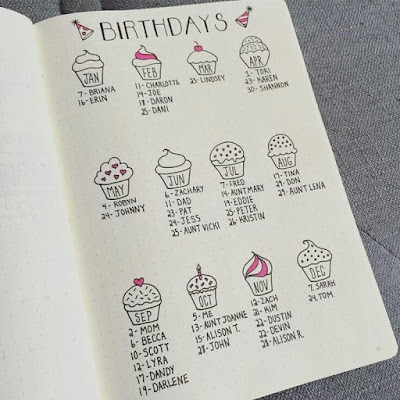 BIRTHDAYS
JAN
7 - BRIANA
16 - ERIN
FEB
11 - CHARLOTTE
14 - JOE
18 - DARON
25 - DANI
MAR
23 - LINDSEY
APR
1 - TORI
23 - KAREN
30 - SHANNON
MAY
4 - ROBYN
24 - JOHNNY
JUN
6 - ZACHARY
11 - DAD
23 - PAT
24 - JESS
25 - AUNT VICKI
JUL
7 - FRED
14 - AUNT MARY
19 - EDDIE
25 - PETER
26 - KRISTIN
AUG
17 - TINA
29 - DON
29 - AUNT LENA
SEP
2 - MOM
6 - BECCA
10 - SCOTT
12 - LYRA
17 - DANDY
19 - DARLENE
OCT
5 - ME
13 - AUNT JOANNE
15 - ALISON T.
28 - JOHN
NOV
12 - ZACH
20 - KIM
22 - DUSTIN
22 - DEVIN
28 - ALISON R.
DEC
7 - SARAH
24 - TOM